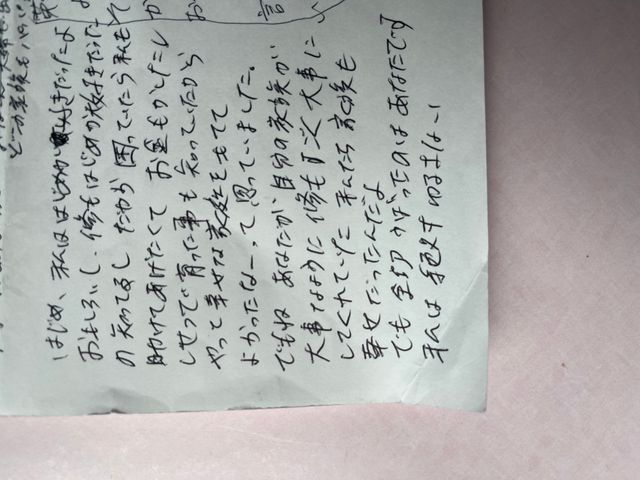 はじめ、私ははじめが大好きだったよ
おもしろいし、修もはじめが大好きだった
の知ってるし だから困っていたら私も
助けてあげたくて お金もかしたし
しせつで育った事も知っていたから
やって幸せな家庭をもてて
よかったなーって思っていました。
でもねあなたが自分の家族が
大事なように修もすごく大事に
してくれていた 私たち家族も
幸せだったんだよ
でも全部うばったのはあなたです
私は絶対ゆるさない